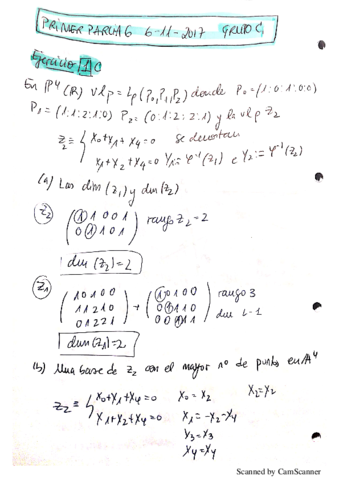 PRIMER PARCIAL 6-11-2017 GRUPO C
Ejercicio 1 C
En P⁴(R) vlp = Lp(P₀,P₁,P₂) donde P₀=(1:0:1:0:0)
P₁=(1:1:2:1:0) P₂=(0:1:2:2:1) y la vlp Z₂
Z₂ ≡ { x₀+x₁+x₄=0 Se denotan
x₁+x₂+x₄=0 Y₁:=φ⁻¹(Z₁) e Y₂:=φ⁻¹(Z₂)
(a) Las dim (Z₁) y dim(Z₂)
Z₂ (1 1 0 0 1
0 1 1 0 1) rango Z₂=2
dim (Z₂)=2
Z₁ (1 0 1 0 0
1 1 2 1 0
0 1 2 2 1) → (1 0 1 0 0
0 1 1 1 0
0 0 1 1 1) rango 3
dim L-1
dim(Z₁)=2
(b) Una base de Z₂ con el mayor nº de puntos en A⁴
Z₂ ≡ { x₀+x₁+x₄=0 x₀=x₂ x₂=x₂
x₁+x₂+x₄=0 x₁=-x₂-x₄
x₃=x₃
x₄=x₄
Scanned by CamScanner